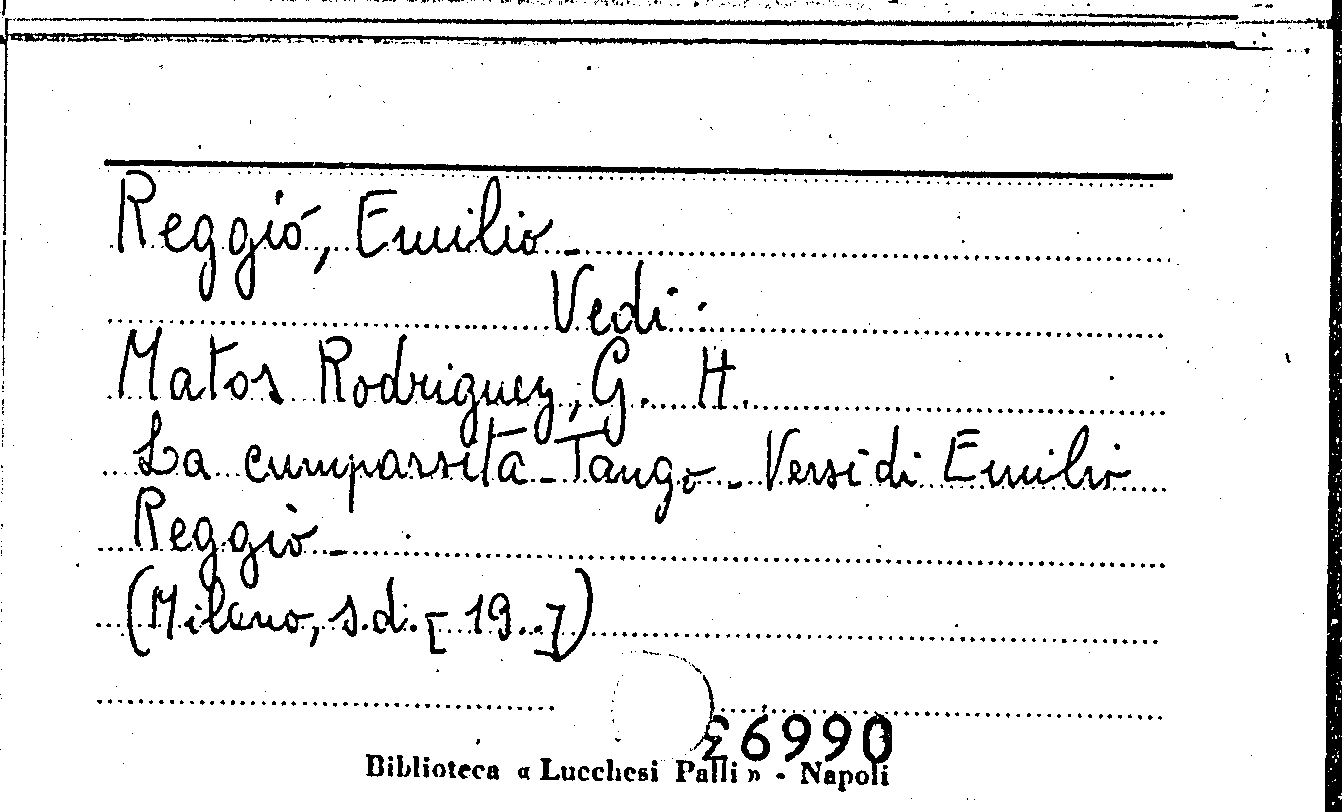 Reggió, Emilio -
Vedi:
Matos Rodriguez, G. H.
La cumparsita - Tango - Versi di Emilio
Reggio -
(Milano, s.d. [19..])
26990
Biblioteca « Lucchesi Palli » - Napoli